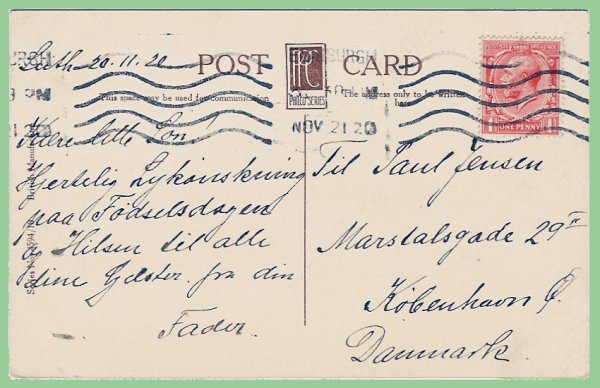 Leith 20.11.20
POST CARD
PHILCO SERIES
This space may be used for communication
The address only to be written here
EDINBURGH
NOV 21 20
ONE PENNY
Kære lille Søn!
Hjertelig Lykønskning
paa Fødselsdagen
og Hilsen til alle
dine fra din
Fader.
Til Paul Jensen
Marstalsgade 29
København Ø.
Danmark.
British Manufacture